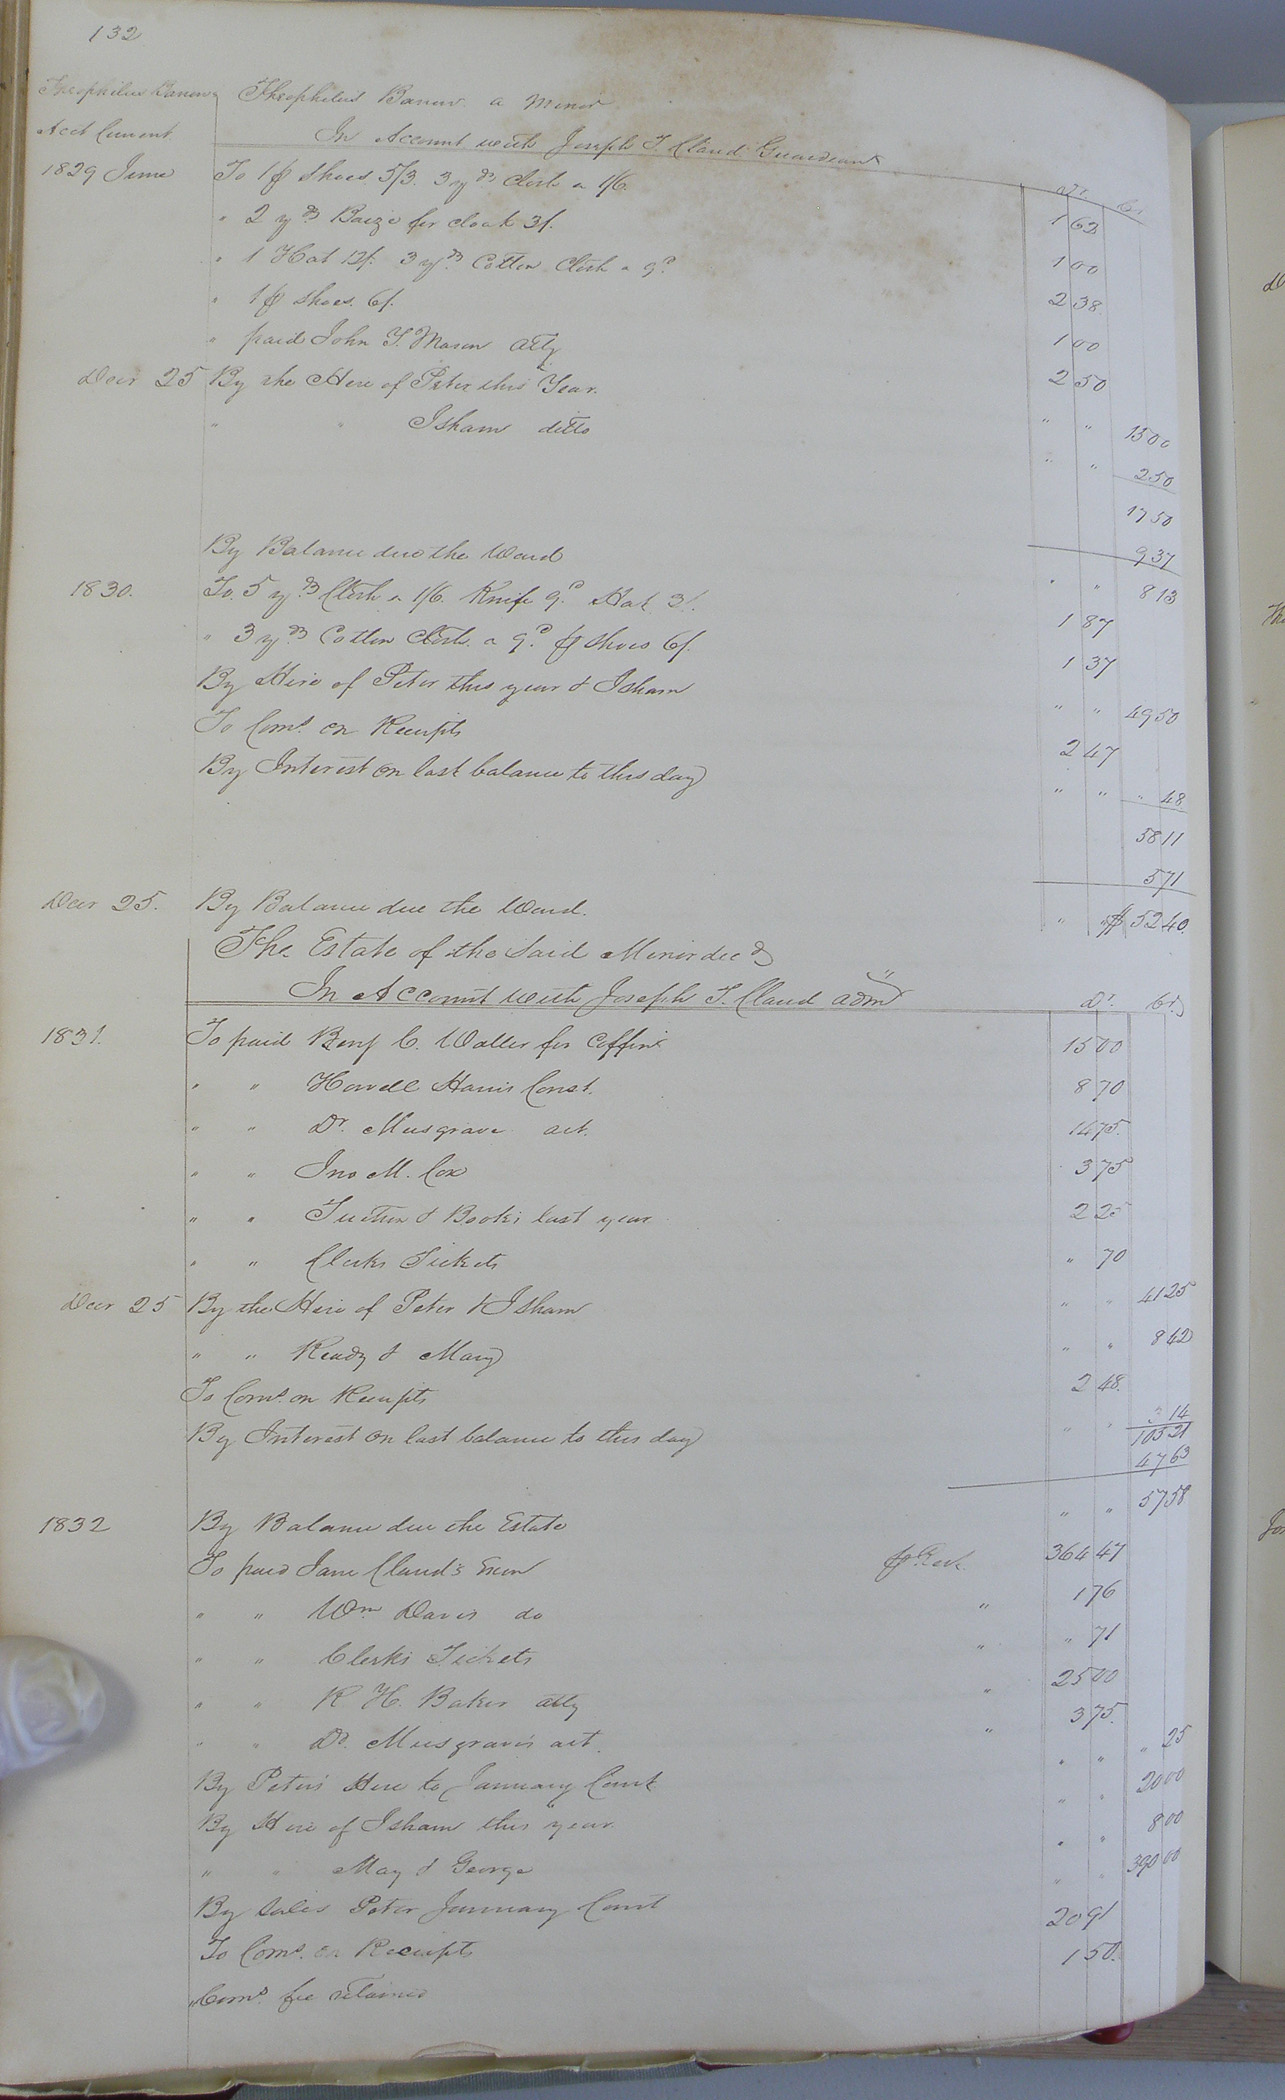 132
Theophilus Barrow
Acct Current
Theophilus Barrow a Minor
In Account with Joseph T. Claud Guardian
Dr Cr
1829 June To 1 pr Shoes 5/3. 3 yds Cloth a 1/6. 1 62
" 2 yds Baize for cloak 3/. 1 00
" 1 Hat 12/. 3 yds Cotton Cloth a 9d 2 38
" 1 pr Shoes. 6/. 1 00
" paid John Y. Mason atty 2 50
Decr 25 By the Hire of Peter this Year. " " 15 00
" " Isham ditto " " 2 50
17 50
9 37
By Balance due the Ward " " 8 13
1830. To 5 yds Cloth a 1/6. Knife 9d. Hat 3/. 1 87
" 3 yds Cotton Cloth a 9d. pr shoes 6/. 1 37
By Hire of Peter this year & Isham " " 49 50
To Coms. on Receipts 2 47
By Interest on last balance to this day " " " 48
58 11
5 71
Decr 25. By Balance due the Ward. " " $ 52 40
The Estate of the Said Minor decd
In Account with Joseph T. Claud admr
Dr. Cr.
1831. To paid Benj C. Waller for Coffin 15 00
" " Howell Harris Const. 8 70
" " Dr. Musgrave act. 14 75
" " Jno M. Cox 3 75
" " Tuition & Books last year 2 25
" " Clerks Tickets " 70
Decr 25 By the Hire of Peter & Isham " " 41 25
" " Ready & Mary " " 8 42
To Coms. on Receipts 2 48
By Interest on last balance to this day " " 3 14
105 21
47 63
1832 By Balance due the Estate " " 57 58
To paid Jane Claud's Exon pr Rect 364 47
" " Wm Davis do " 1 76
" " Clerks Tickets " " 71
" " R. H. Baker atty " 25 00
" " Dr. Musgraves act. " 3 75
By Peters Hire to January Court " " " 25
By Hire of Isham this year " " 20 00
" " May & George " " 8 00
By Sales Peter January Court " " 390 00
To Coms. on Receipts 20 91
" Coms. fee retained 1 50